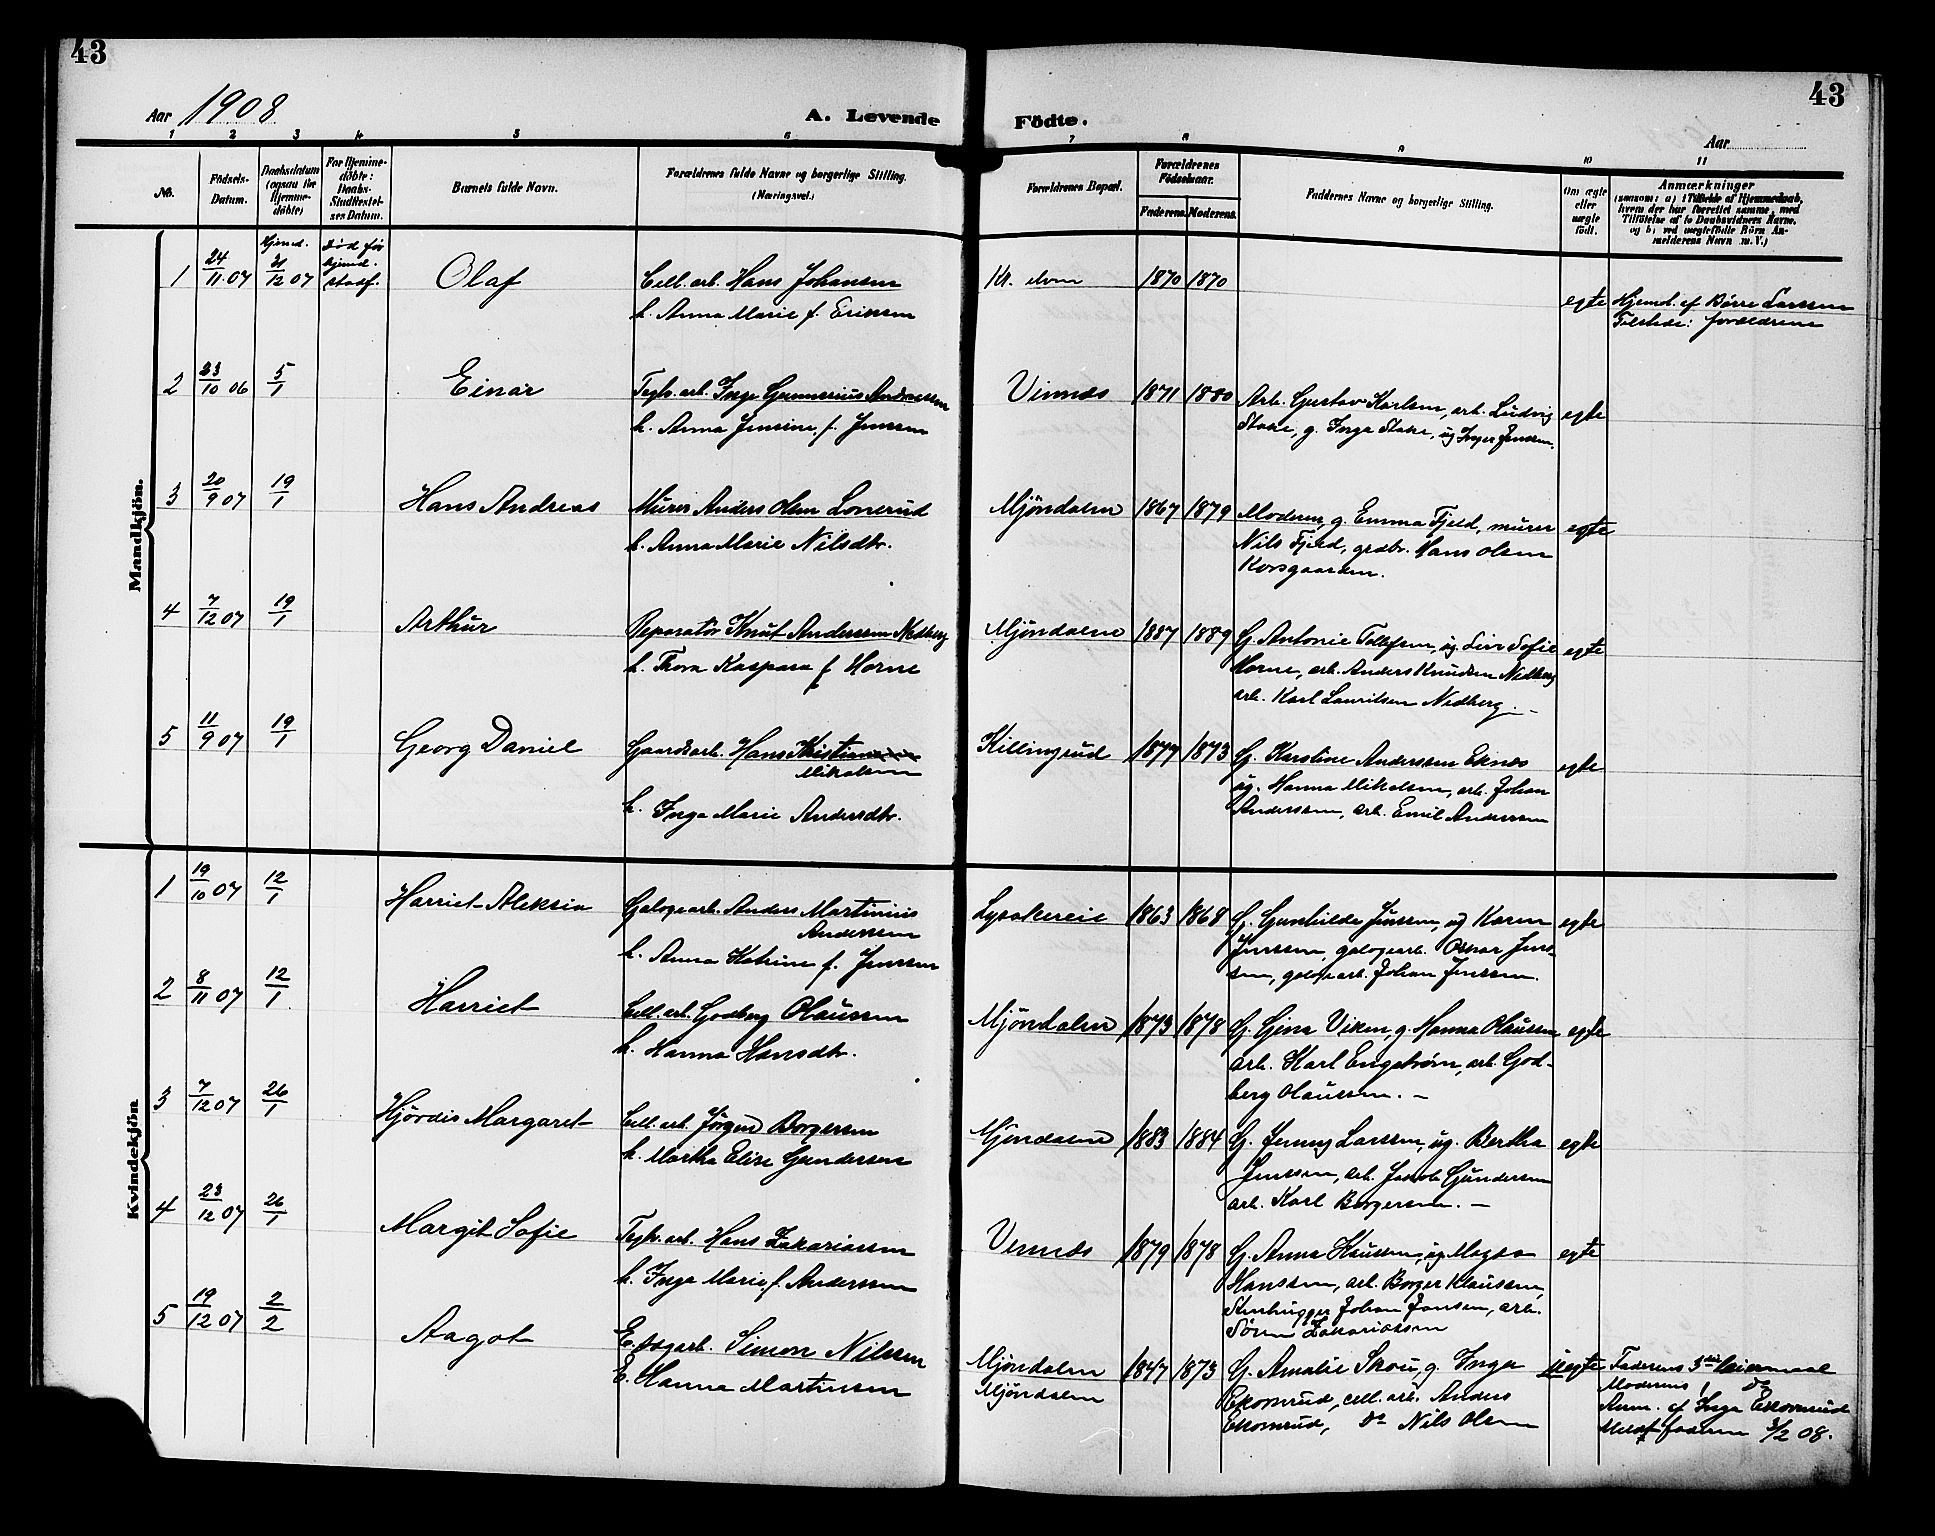 43
43
Aar 1908
A. Levende
Födte.
Aar
1 2 3 4 5 6 7 8 9 10 11
No.
Födsels-
Datum.
Daabsdatum
(ogsaa for
Hjemme-
döbte)
For Hjemme-
döbte:
Daabs-
Stadfæstel-
ses Datum.
Barnets fulde Navn.
Forældrenes fulde Navne og borgerlige Stilling.
(Næringsvei.)
Forældrenes Bopæl.
Forældrenes
Födselsaar.
Faderens. Moderens.
Faddernes Navne og borgerlige Stilling.
Om ægte
eller
uægte
født.
Anmærkninger
(saasom: a) i Tilfælde af Hjemmedaab,
hvem der har forrettet samme, med
Tilföielse af to Daabsvidners Navne,
og b) ved uægtefödte Börn An-
melderens Navn m. V.)
Mandkjön.
1 24/11 07 Hjemd. 31/12 07 Død før hjemd. stadf. Olaf
Cell. arb. Hans Johansen
h. Anna Marie f. Eriksen
1870 1870 egte
Hjemd. af Børre Larssen
Tilstede: forældrene
2 23/10 06 5/1 Einar
Tegls. arb. Inge Gunnerius Andreassen
h. Anna Jensine f. Jenssen
Vinnæs 1871 1880
Arb. Gustav Karlsen, arb. Ludvig
Stake, g. Inga Stake, ug. Inger Jenssen.
egte
3 20/9 07 19/1 Hans Andreas
Murer Anders Olsen Lonerud
h. Anna Marie Nilsdtr.
Mjøndalen 1867 1879
Moderen, g. Emma Fjeld, murer
Nils Fjeld, grdbr. Hans Olsen
Korsgaarden.
egte
4 7/12 07 19/1 Arthur
Reparatør Knut Anderssen Nedberg
h. Thora Kaspara f. Horne
Mjøndalen 1887 1889
G. Antonie Tollefsen, ug. Siri Sofie
Horne, arb. Anders Knudsen Nedberg
arb. Karl Lauritsen Nedberg. –
egte
5 11/9 07 19/1 Georg Daniel
Gaardsarb. Hans Kristiansen
Mikalsen
h. Inga Marie Andersdtr.
Killingrud 1877 1873
G. Karoline Anderssen Eknæs
ug. Hanna Mikalsen, arb. Johan
Anderssen, arb. Emil Anderssen
egte
Kvindekjön
1 19/10 07 12/1 Harriet Aleksia
Galogearb. Anders Martinius
Anderssen
h. Anna Katrine f. Jenssen
Lysakereie 1863 1868
G. Gunhilda Jenssen, ug Karen
Jenssen, galogearb. Oskar Jens-
sen, galogearb. Johan Jenssen.
egte
2 8/11 07 12/1 Harriet
Cell. arb. Godberg Olaussen
h. Hanna Hansdtr.
Mjøndalen 1873 1878
G. Gina Viken, g. Hanna Olaussen
arb. Karl Engstrøm, arb. God-
berg Olaussen. –
egte
3 7/12 07 26/1 Hjørdis Margaret
Cell. arb. Jørgen Borgersen
h. Martha Elise Gundersen
Mjøndalen 1883 1884
G. Jenny Larssen, ug. Bertha
Jenssen, arb. Jacob Gundersen
arb. Karl Borgersen. –
egte
4 23/12 07 26/1 Margit Sofie
Tegls. arb. Hans Zakariassen
h. Inga Marie f. Anderssen
Vinnæs 1879 1878
G. Anna Klaussen, ug Magda
Hanssen, arb. Borger Klaussen,
Stenhugger Johan Jansen, arb.
Søren Zakariassen
egte
5 19/12 07 2/2 Aagot
E. Dagarb. Simon Nilssen
E. Hanna Martinsen
Mjøndalen
Mjøndalen
1847 1873
G. Amalie Skou, g. Inga
Ekornrud, cell. arb. Anders
Ekornrud, do Nils Olsen
uegte
Faderens 3die leiermaal
Moderens 1 do
Anm. af Inga Ekornrud
Meldt faderen 3/2 08.